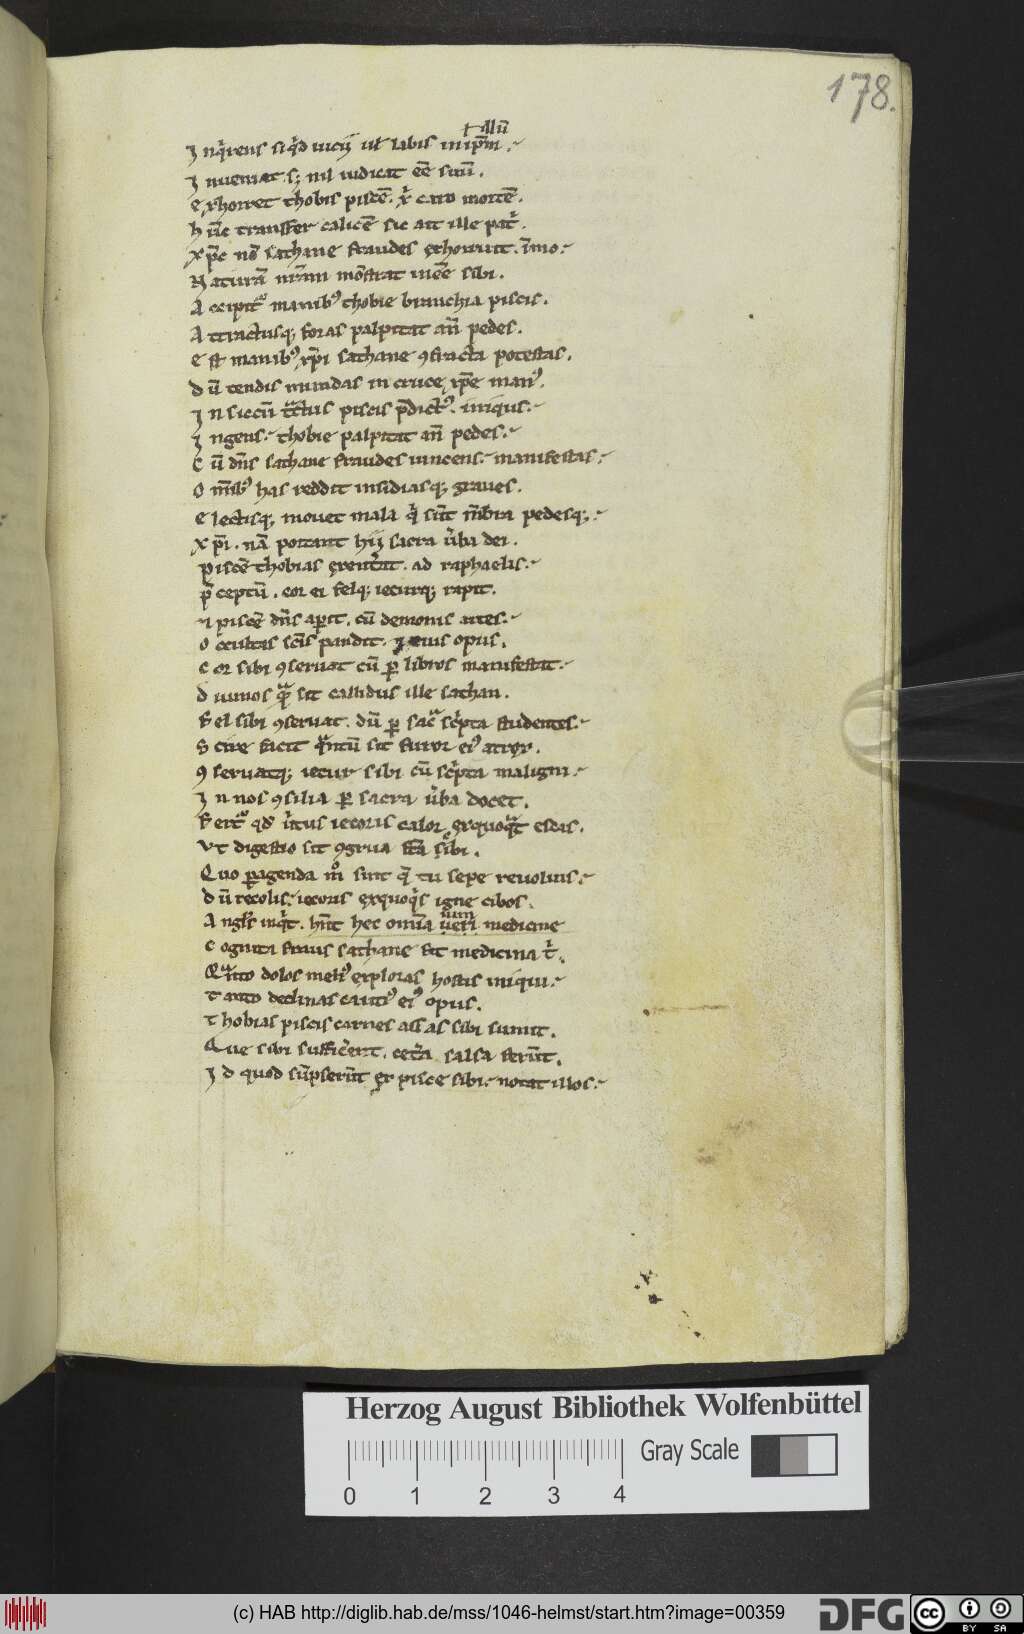 178.
ł illū
J nq̄rens siq̊d uicij uł labis inip̄m.
J nueniat. sꝫ nil iudicat eē suū.
e xhorret thobis piscē. xp̄c caro mortē.
h ūc transfer calicē sic ait ille pat̄.
xp̄c nō sathane fraudes exhorruit. īmo.
N aturā nr̄am mōstrat inēē sibi.
A ccipit᷑ manibꝰ thobie branchia piscis.
A ttractusqꝫ foras palpitat an̄ pedes.
e st manibꝰ xp̄i sathane ꝯfracta potestas.
d ū tendis mundas in cruce xp̄e manꝰ.
J n siccū tͣctus piscis p̄dictꝰ. iniqus.
i ngens. thobie palpitat an̄ pedes.
C ū dn̄s sathane fraudes uincens. manifestas.
O mībꝰ has reddit insidiasqꝫ graues.
e lectisqꝫ mouet mala q̄ sūt mēbra pedesqꝫ.
x p̄i. nā portant hij sacra ūba dei.
piscē thobias exent̄at. ad raphaelis.
p̄ceptū. cor ei felqꝫ iecurqꝫ rapit.
piscē dn̄s apit. cū demonis artes.
O ccultas scīs pandit. ⁊ eius opus.
C or sibi ꝯseruat cū ꝑ libros manifestat.
d iuinos qͣm sit callidus ille sathan.
F el sibi ꝯseruat. dū ꝑ sacͣ scͥpta studentes.
S cire facit qͣntū sit furor eiꝰ atrox.
ꝯ seruatqꝫ iecur sibi cū scͥpta maligni.
J n nos ꝯsilia ꝑ sacra ūba docet.
F ert᷑ qd̄ uͥtus iecoris calor exquoqͣt escas.
vt digestio sit ꝯgrua sibi.
Quo ꝑagenda mͦ sint q̄ tu sepe reuoluis.
d ū recolis. iecoris exquoqͥs igne cibos.
A ngls̄ inqͥt. hn̄t hec omīa ueri medicine
num
C ognita fraus sathane fit medicina tͥ.
Qͣnto dolos meliꝰ exploras hostis iniqui.
T anto declinas cautiꝰ eiꝰ opus.
T hobias piscis carnes assas sibi sumit.
Que sibi sufficͥent. cet̄a salsa ferūt.
J d quod sūpserūt ex pisce sibi. notat illos.
Herzog August Bibliothek Wolfenbüttel
Gray Scale
0 1 2 3 4
(c) HAB http://diglib.hab.de/mss/1046-helmst/start.htm?image=00359
DFG
cc BY SA